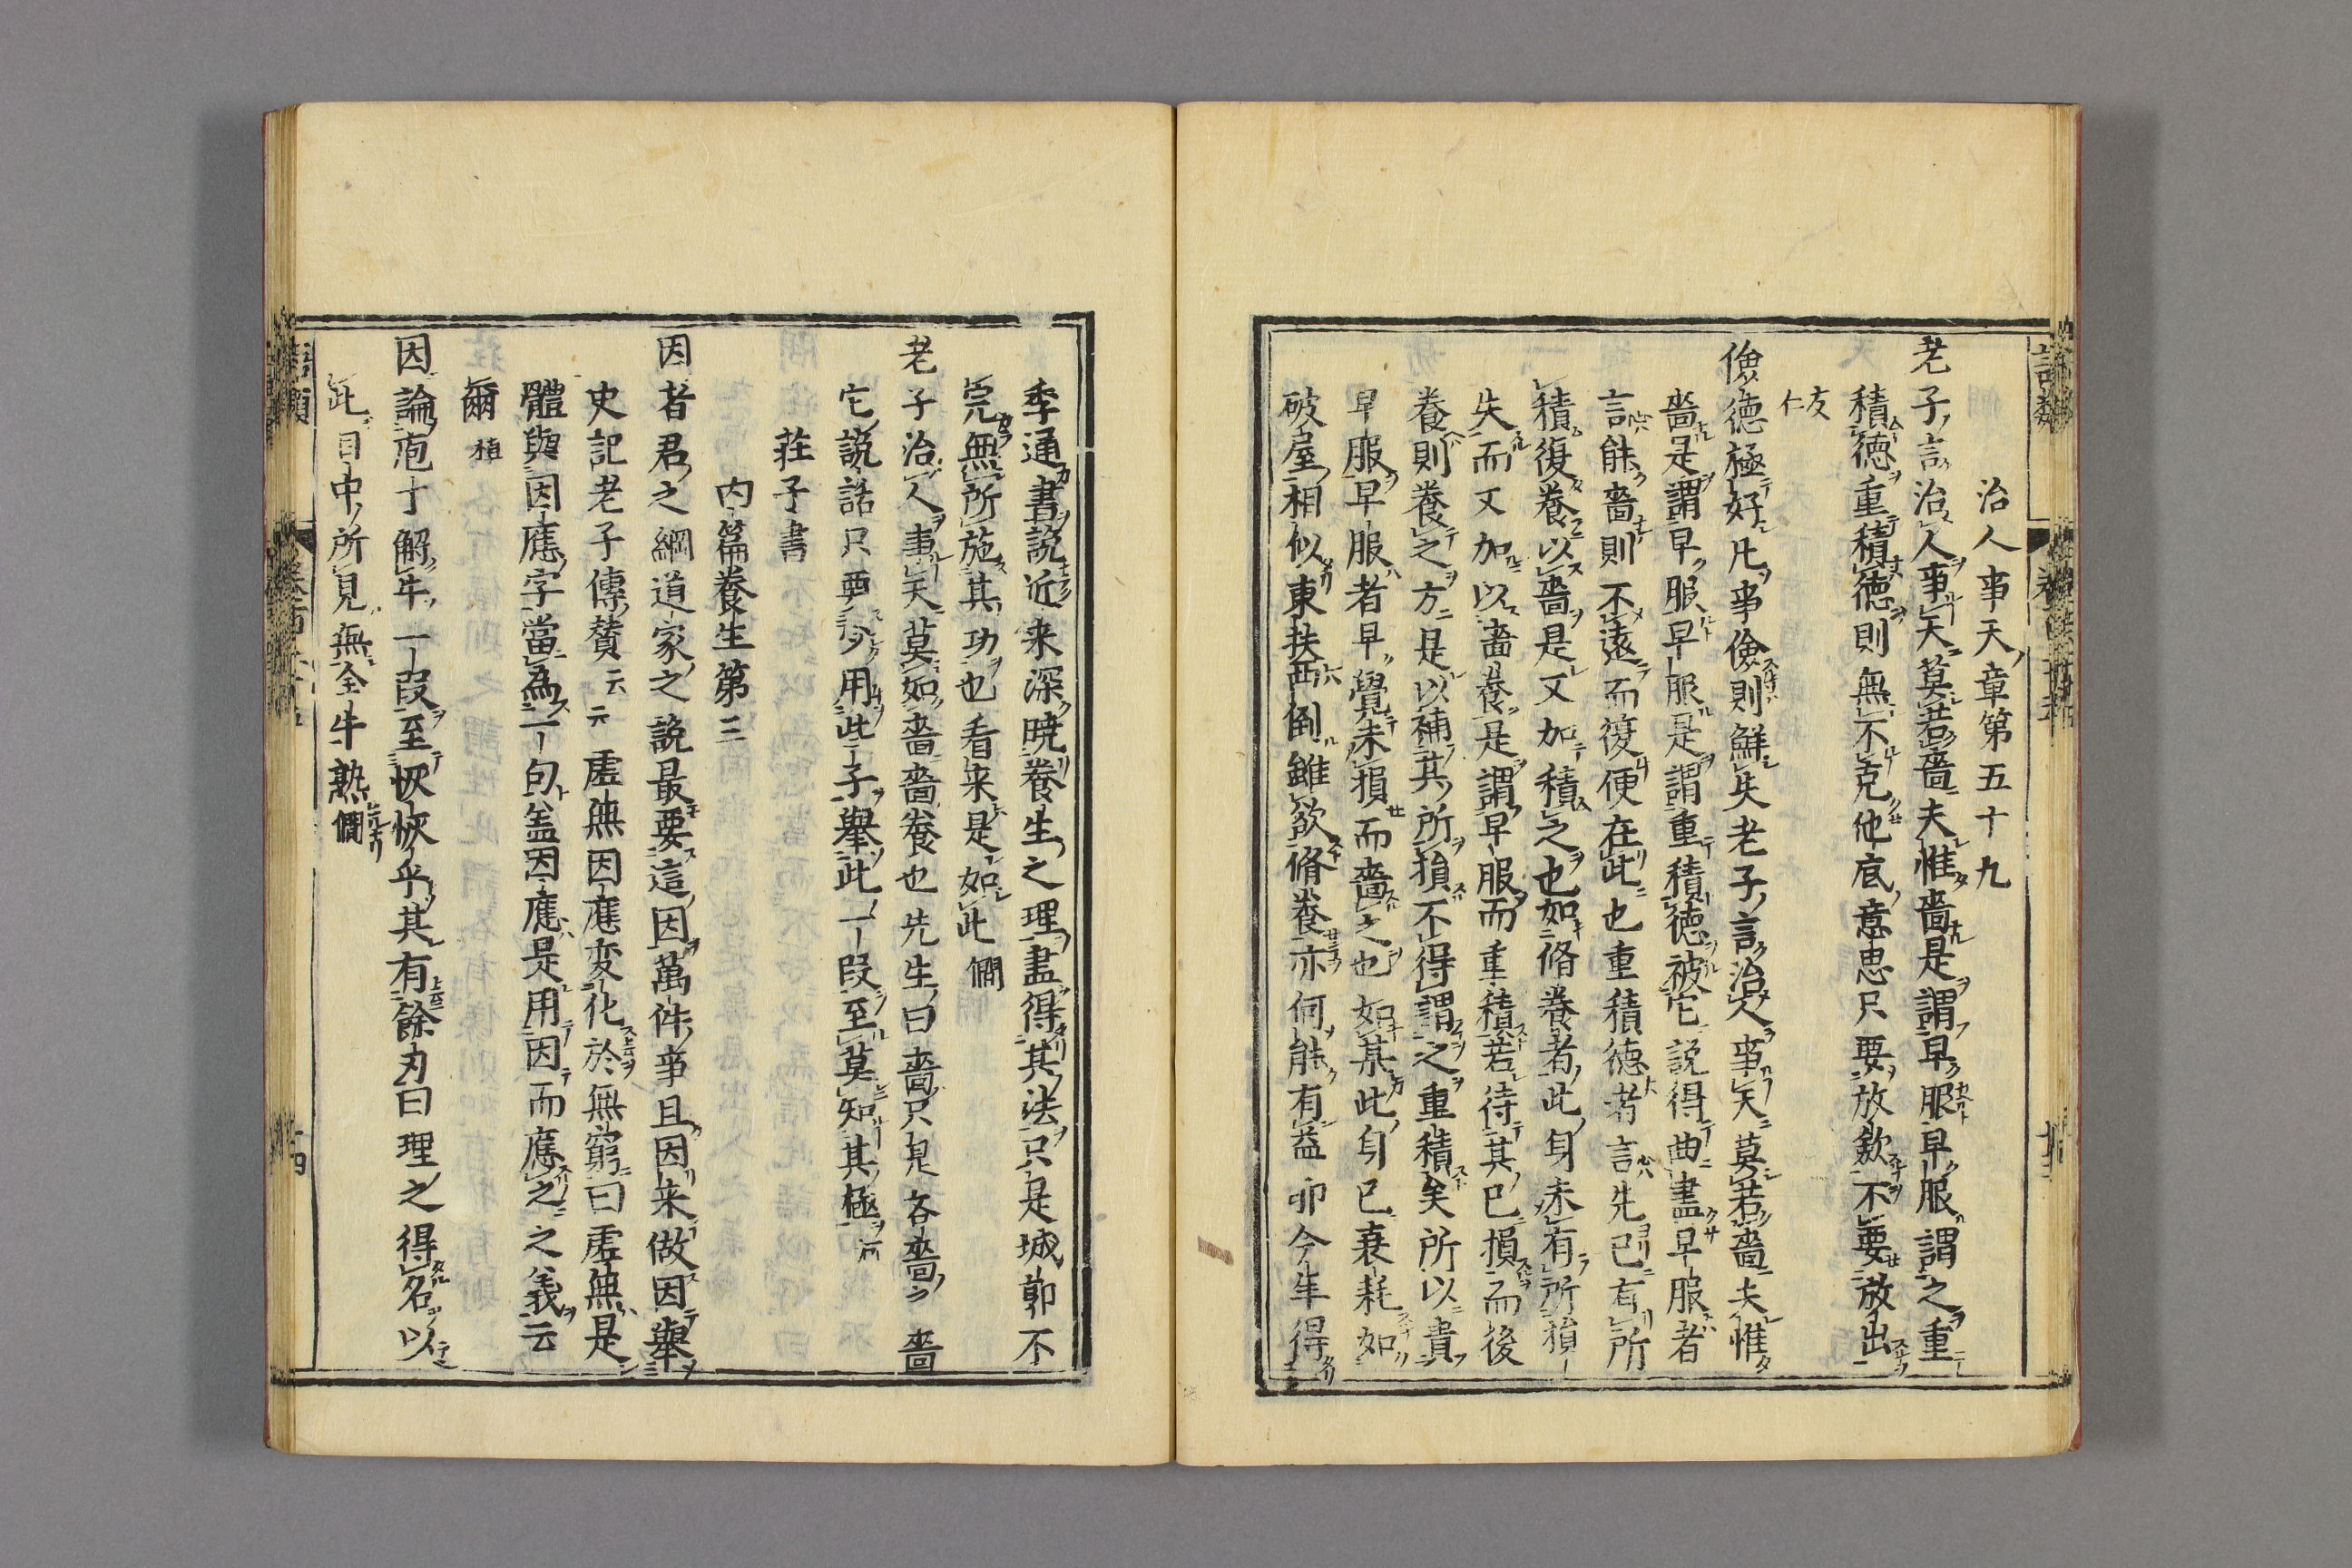 治人事天章第五十九
老子言治人事天莫若嗇夫惟嗇是謂早服早服謂之重
積德重積德則無不克他底意思只要放歛不要放出
友仁
儉德極好凡事儉則鮮失老子言治人事天莫若嗇夫惟
嗇是謂早服早服是謂重積德被它說得曲盡早服者
言能嗇則不遠而復便在此也重積德者言先已有所
積復養以嗇是又加積之也如脩養者此身未有所損
失而又加以嗇養是謂早服而重積若待其已損而後
養則養之方是以補其所損不得謂之重積矣所以貴
早服早服者早覺未損而嗇之也如某此身已衰耗如
破屋相似東扶西倒雖欲脩養亦何能有益卯今年得
季通書說近来深曉養生之理盡得其法只是城郭不
完無所施其功也看来是如此 僩
老子治人事天莫如嗇嗇養也先生曰嗇只是吝嗇之嗇
它說話只要少用此子舉此一段至莫知其極 㽦
莊子書
內篇養生第三
因者君之綱道家之說最要這因萬件事且因来做因舉
史記老子傳贊云云虛無因應变化於無窮曰虛無是
體與因應字當為一句盖因應是用因而應之之義云
爾 植
因論庖丁解牛一段至恢恢乎其有餘刃曰理之得名以
此目中所見無全牛熟 僩